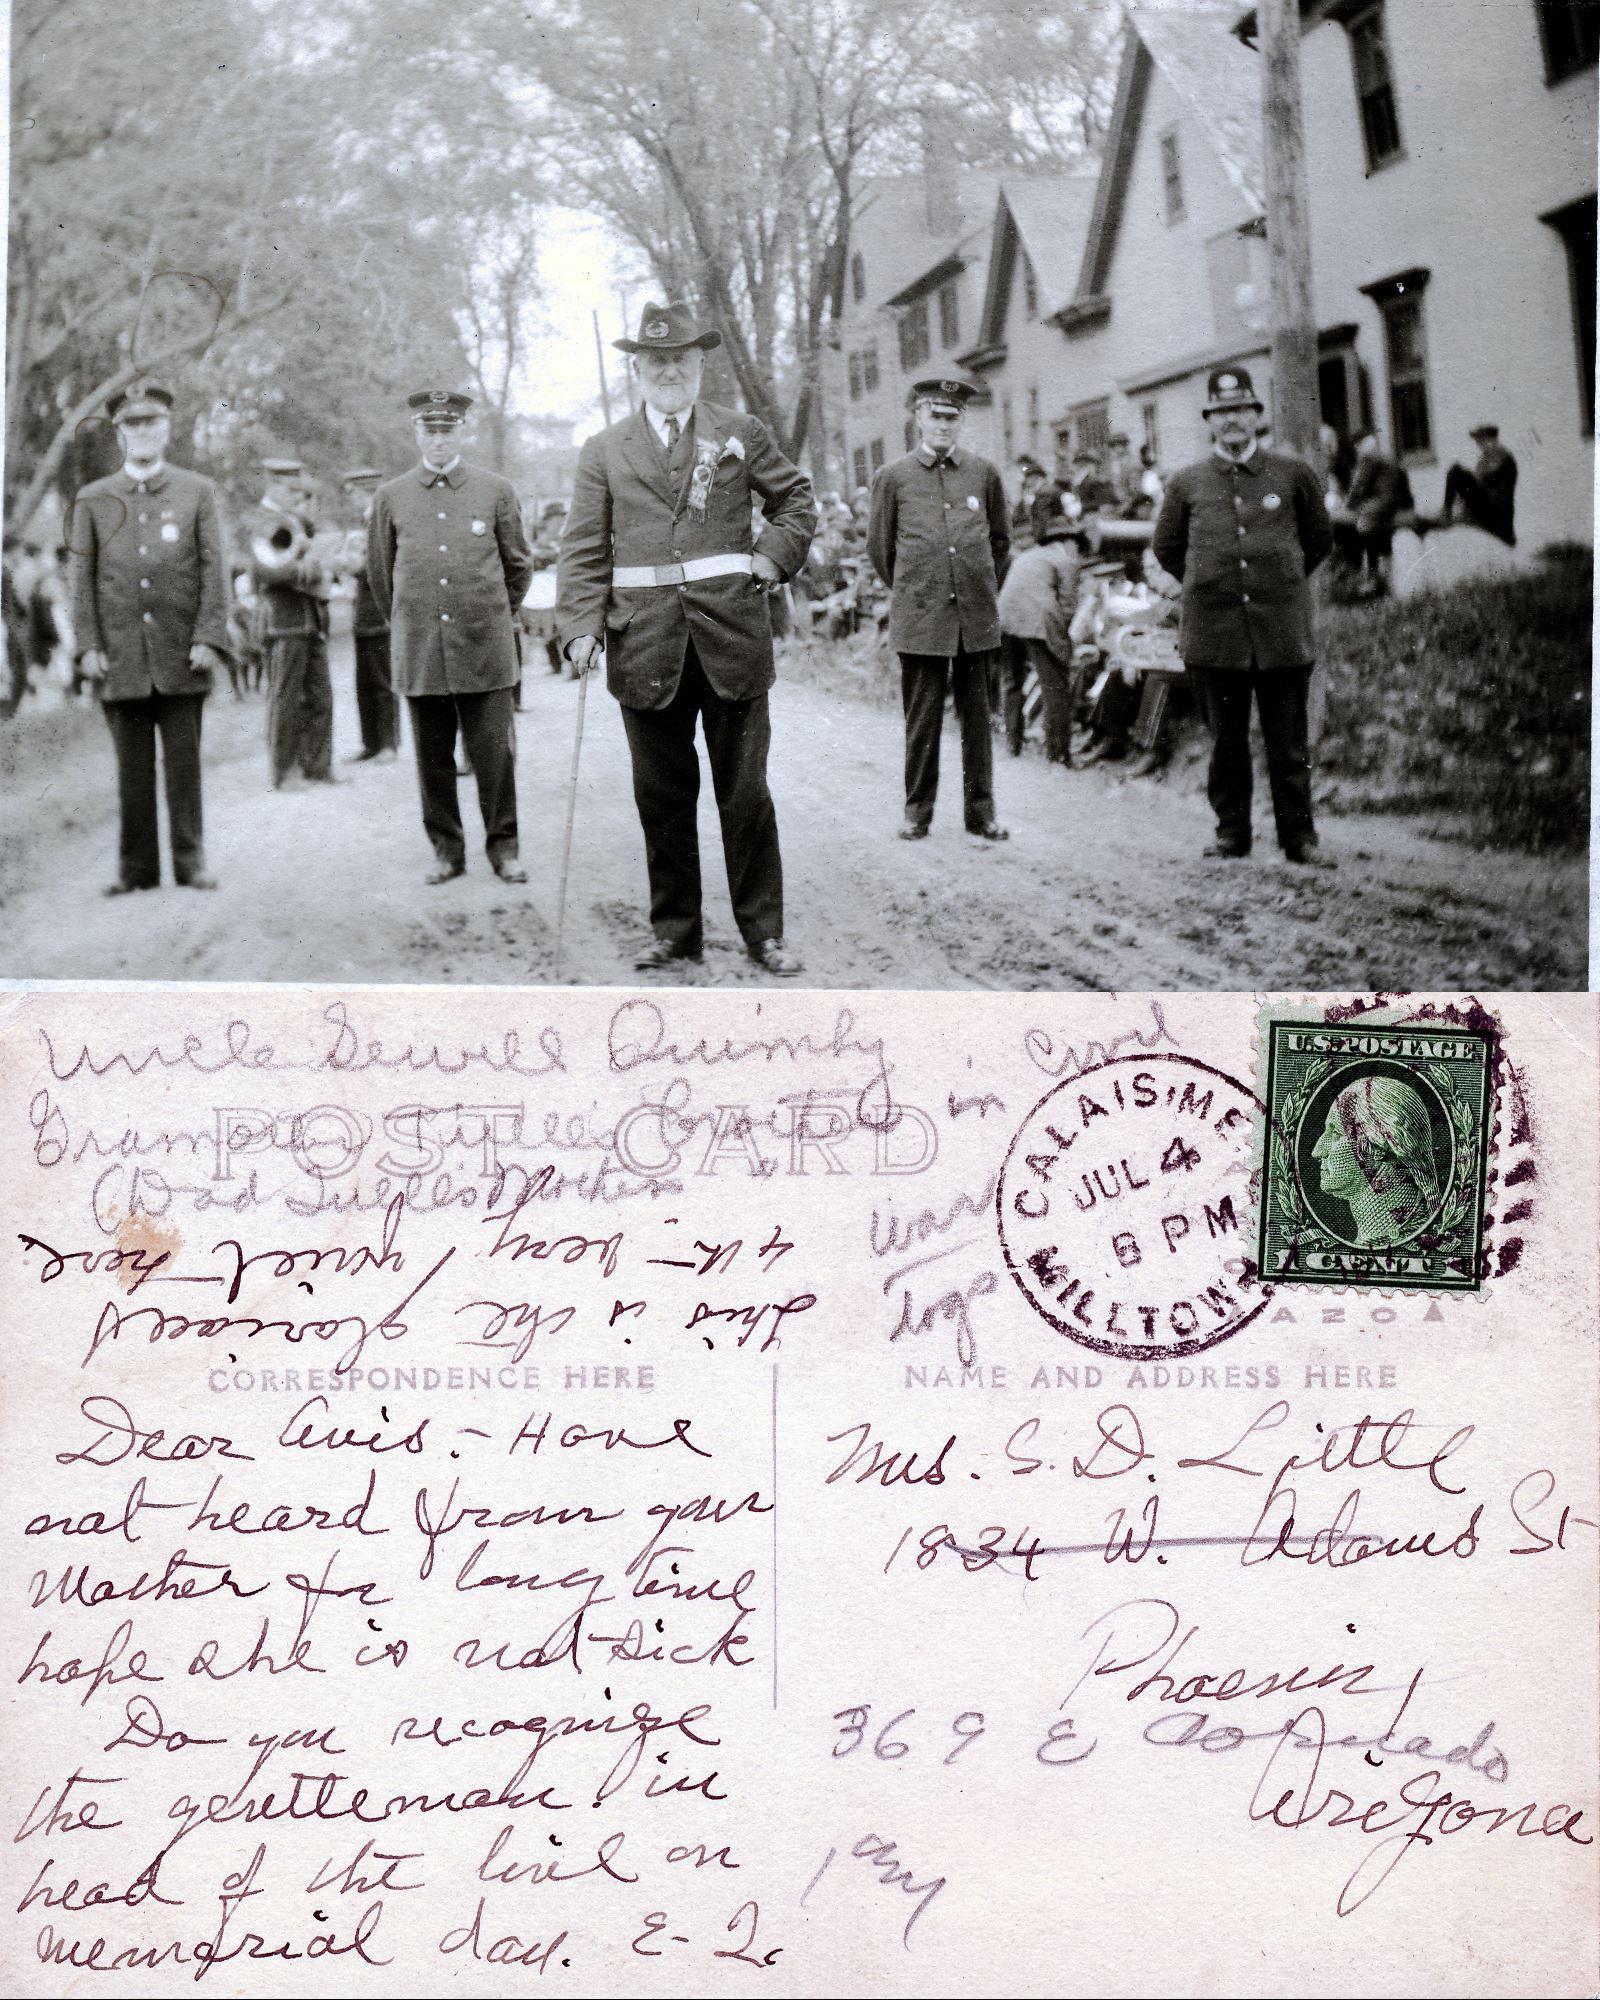 Uncle Sewell Quimby
in Civil
POST CARD
(Dad Tuell's Mother
war
Togs
This is the glorious
4th - very quiet here
CALAIS, ME
JUL 4
8 PM
MILLTOWN
U.S. POSTAGE
1 CENT 1
AZO
CORRESPONDENCE HERE
NAME AND ADDRESS HERE
Dear Avis. - Have
not heard from your
Mother for long time
hope she is not sick
Do you recognize
the gentleman in
head of the line on
memorial day. E- Q.
Mrs. S. D. Little
1834 W. Adams St
Phoenix,
369 E Coronado
Arizona